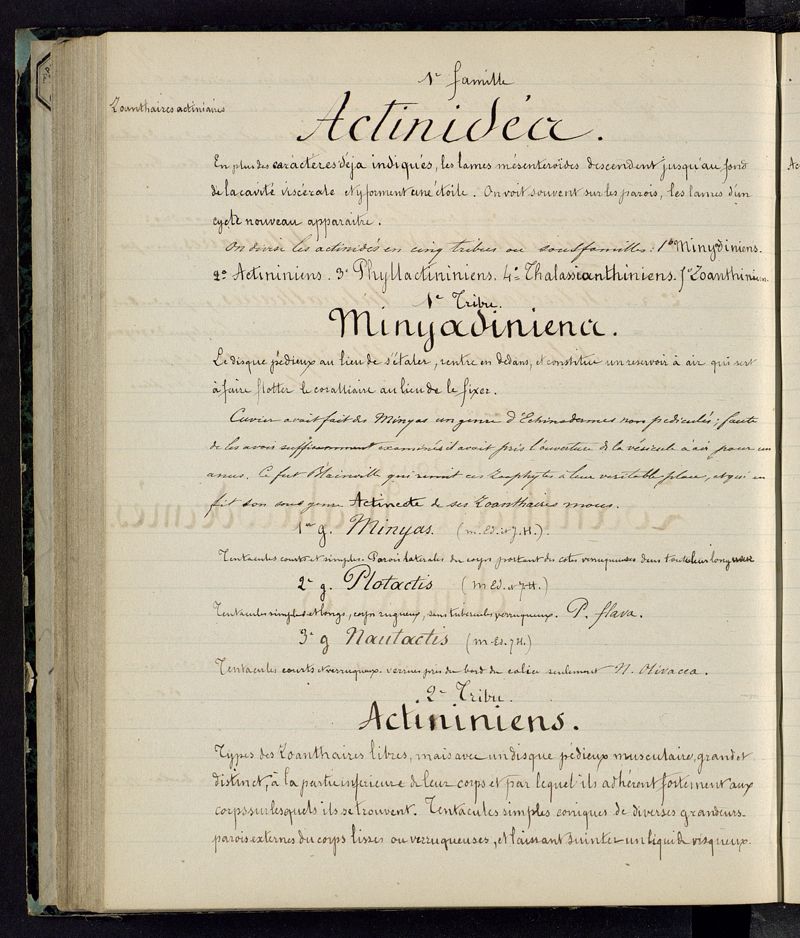 1re famille
Zoanthaires actiniaires
Actinidéa.
En plus des caractères déja indiqués, les lames mésenteroïdes descendent jusqu'au fond
de la cavité viscérale et y forment une étoile. On voit souvent sur les parois, les lames d'un
cycle nouveau apparaitre.
On divise les actinidés en cinq tribus ou sous familles: 1o Minyadiniens.
2o Actininiens. 3o Phyllactininiens. 4o Thalassianthiniens. 5o Zoanthiniens.
1re Tribu.
Minyadiniena.
Le disque pédieux au lieu de s'étaler, rentre en dedans, et constitue un reservoir à air qui sert
à faire flotter le coralliaire au lieu de le fixer.
Cuvier avait fait des Minyas un genre d'Echinodermes non pediculés; faute
de les avoir suffisamment examinés il avait pris l'ouverture de la vésicule à air pour un
anus. Ce fut Blainville qui remit ces Zoophytes à leur veritable place, et qui en
fit son sous genre Actinecte de ses Zoanthaires mous.
1er g. Minyas. (m. Ed. et J. H.).
Tentacules courts et simples. Parois latérales du corps portant des cotes verruqueuses dans toute leur longueur
2e g. Plotactis (m Ed. et J H.)
Tentacules simples et longs, corps rugueux, sans tubercules verruqueux. P. flava.
3e g Nautactis (m. Ed. J H.)
Tentacules courts et verruqueux. verrues près du bord du calice seulement N. Olivacea.
2e Tribu.
Actininiens.
Types des Zoanthaires libres, mais avec un disque pédieux musculaire, grand et
distinct, à la partie inférieure de leur corps et par lequel ils adhérent fortement aux
corps sur lesquels ils se trouvent. Tentacules simples coniques de diverses grandeurs.
parois externes du corps lisses ou verruqueuses, et laissant suinter un liquide visqueux.